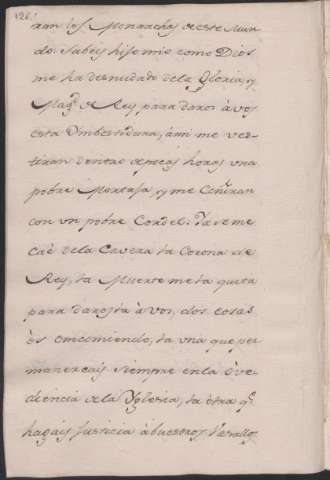 126
ran los Monarchas de este Mun-
do. Sabeis hijo mio como Dios
me ha desnudado de la Gloria, y
Mag.d de Rey, para daros à vos
esta Imbestidura; à mi me ves-
tiran dentro de pocas horas una
pobre Mortaja, y me ceñiran
con un pobre Cordel: Ya se me
cae de la Cavera la Corona de
Rey, la Muerte me la quita
para darosla à vos, dos cosas
òs encomiendo, la una que per
manezcais siempre en la Ove-
diencia de la Yglesia, la otra q.e
hagais Justicia à buestros Vasallos